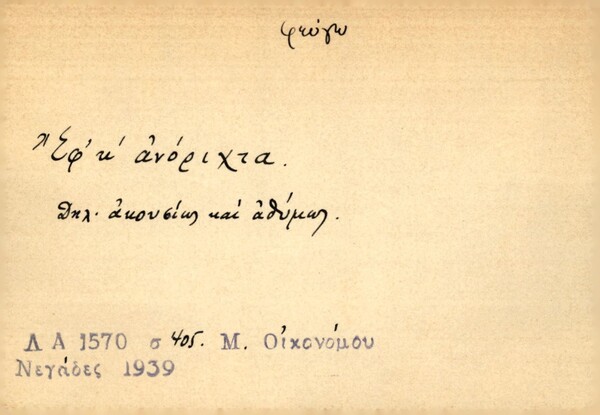 φεύγω
Ἔφ' κ' ἀνόριχτα.
Δηλ. ἀκουσίως καὶ ἀθύμως.
Λ Α 1570 σ 405. Μ. Οἰκονόμου
Νεγάδες 1939